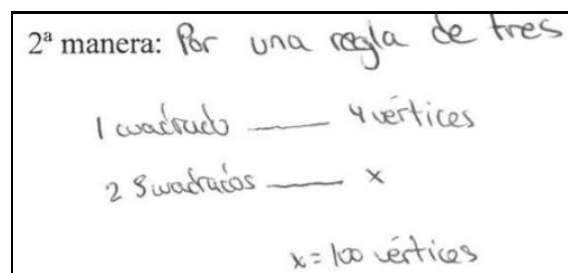 2ª manera: Por una regla de tres
1 cuadrado —— 4 vértices
25 cuadrados —— x
x = 100 vértices